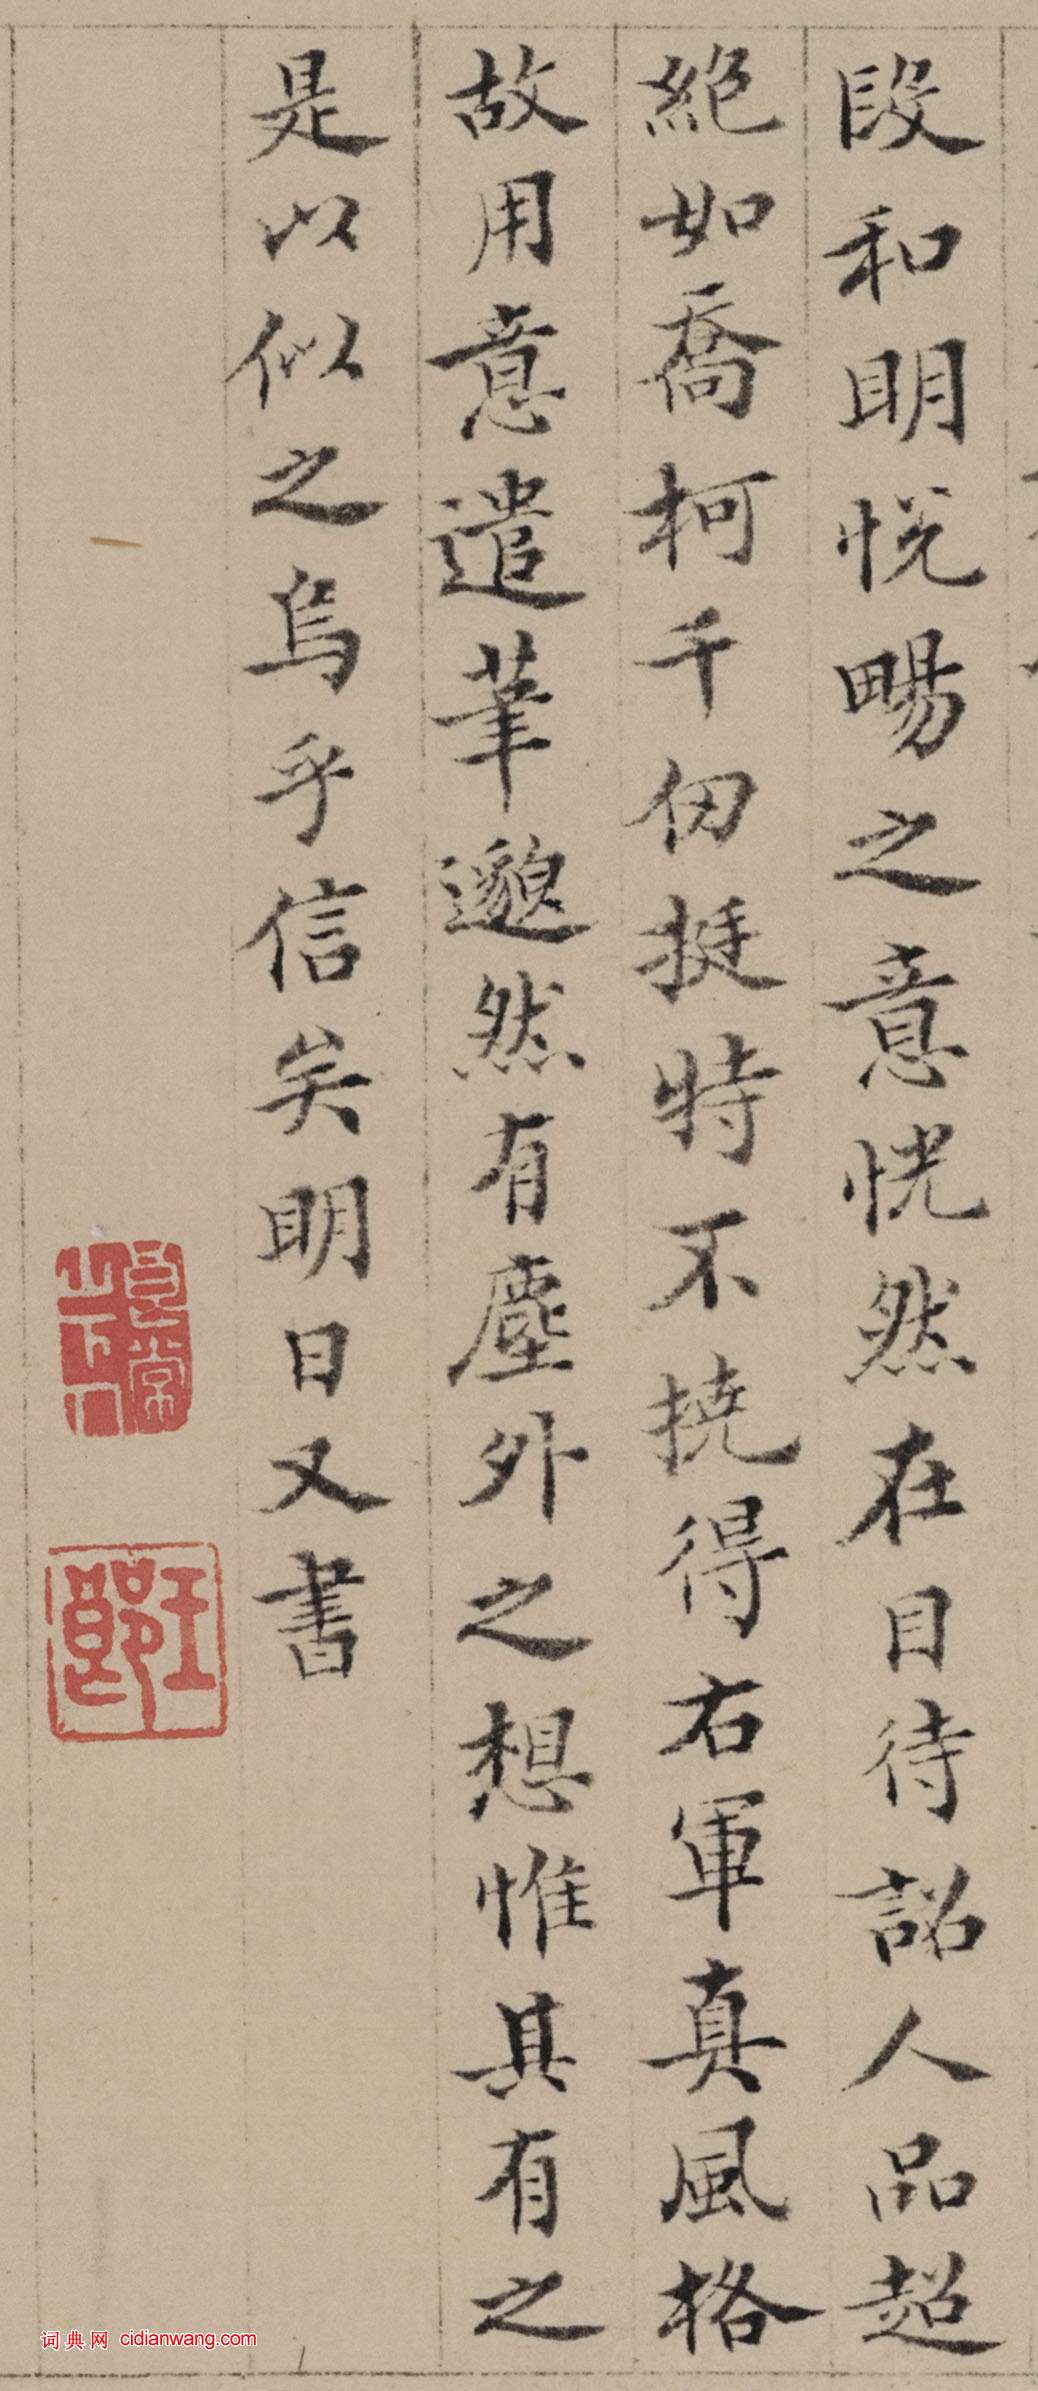 段和明悦暢之意恍然在目待詔人品超
絶如喬柯千仞挺特不撓得右軍真風格
故用意遣筆邈然有塵外之想惟其有之
是以似之烏乎信矣明日又書
词典网 cidianwang.com